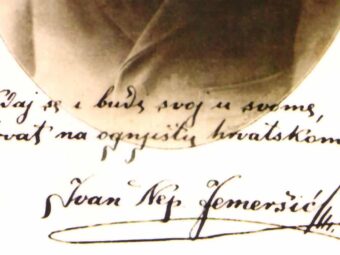 daj se i budi svoj u svome,
rvat na ognjištu hrvatskome
Ivan Nep. Jemeršić